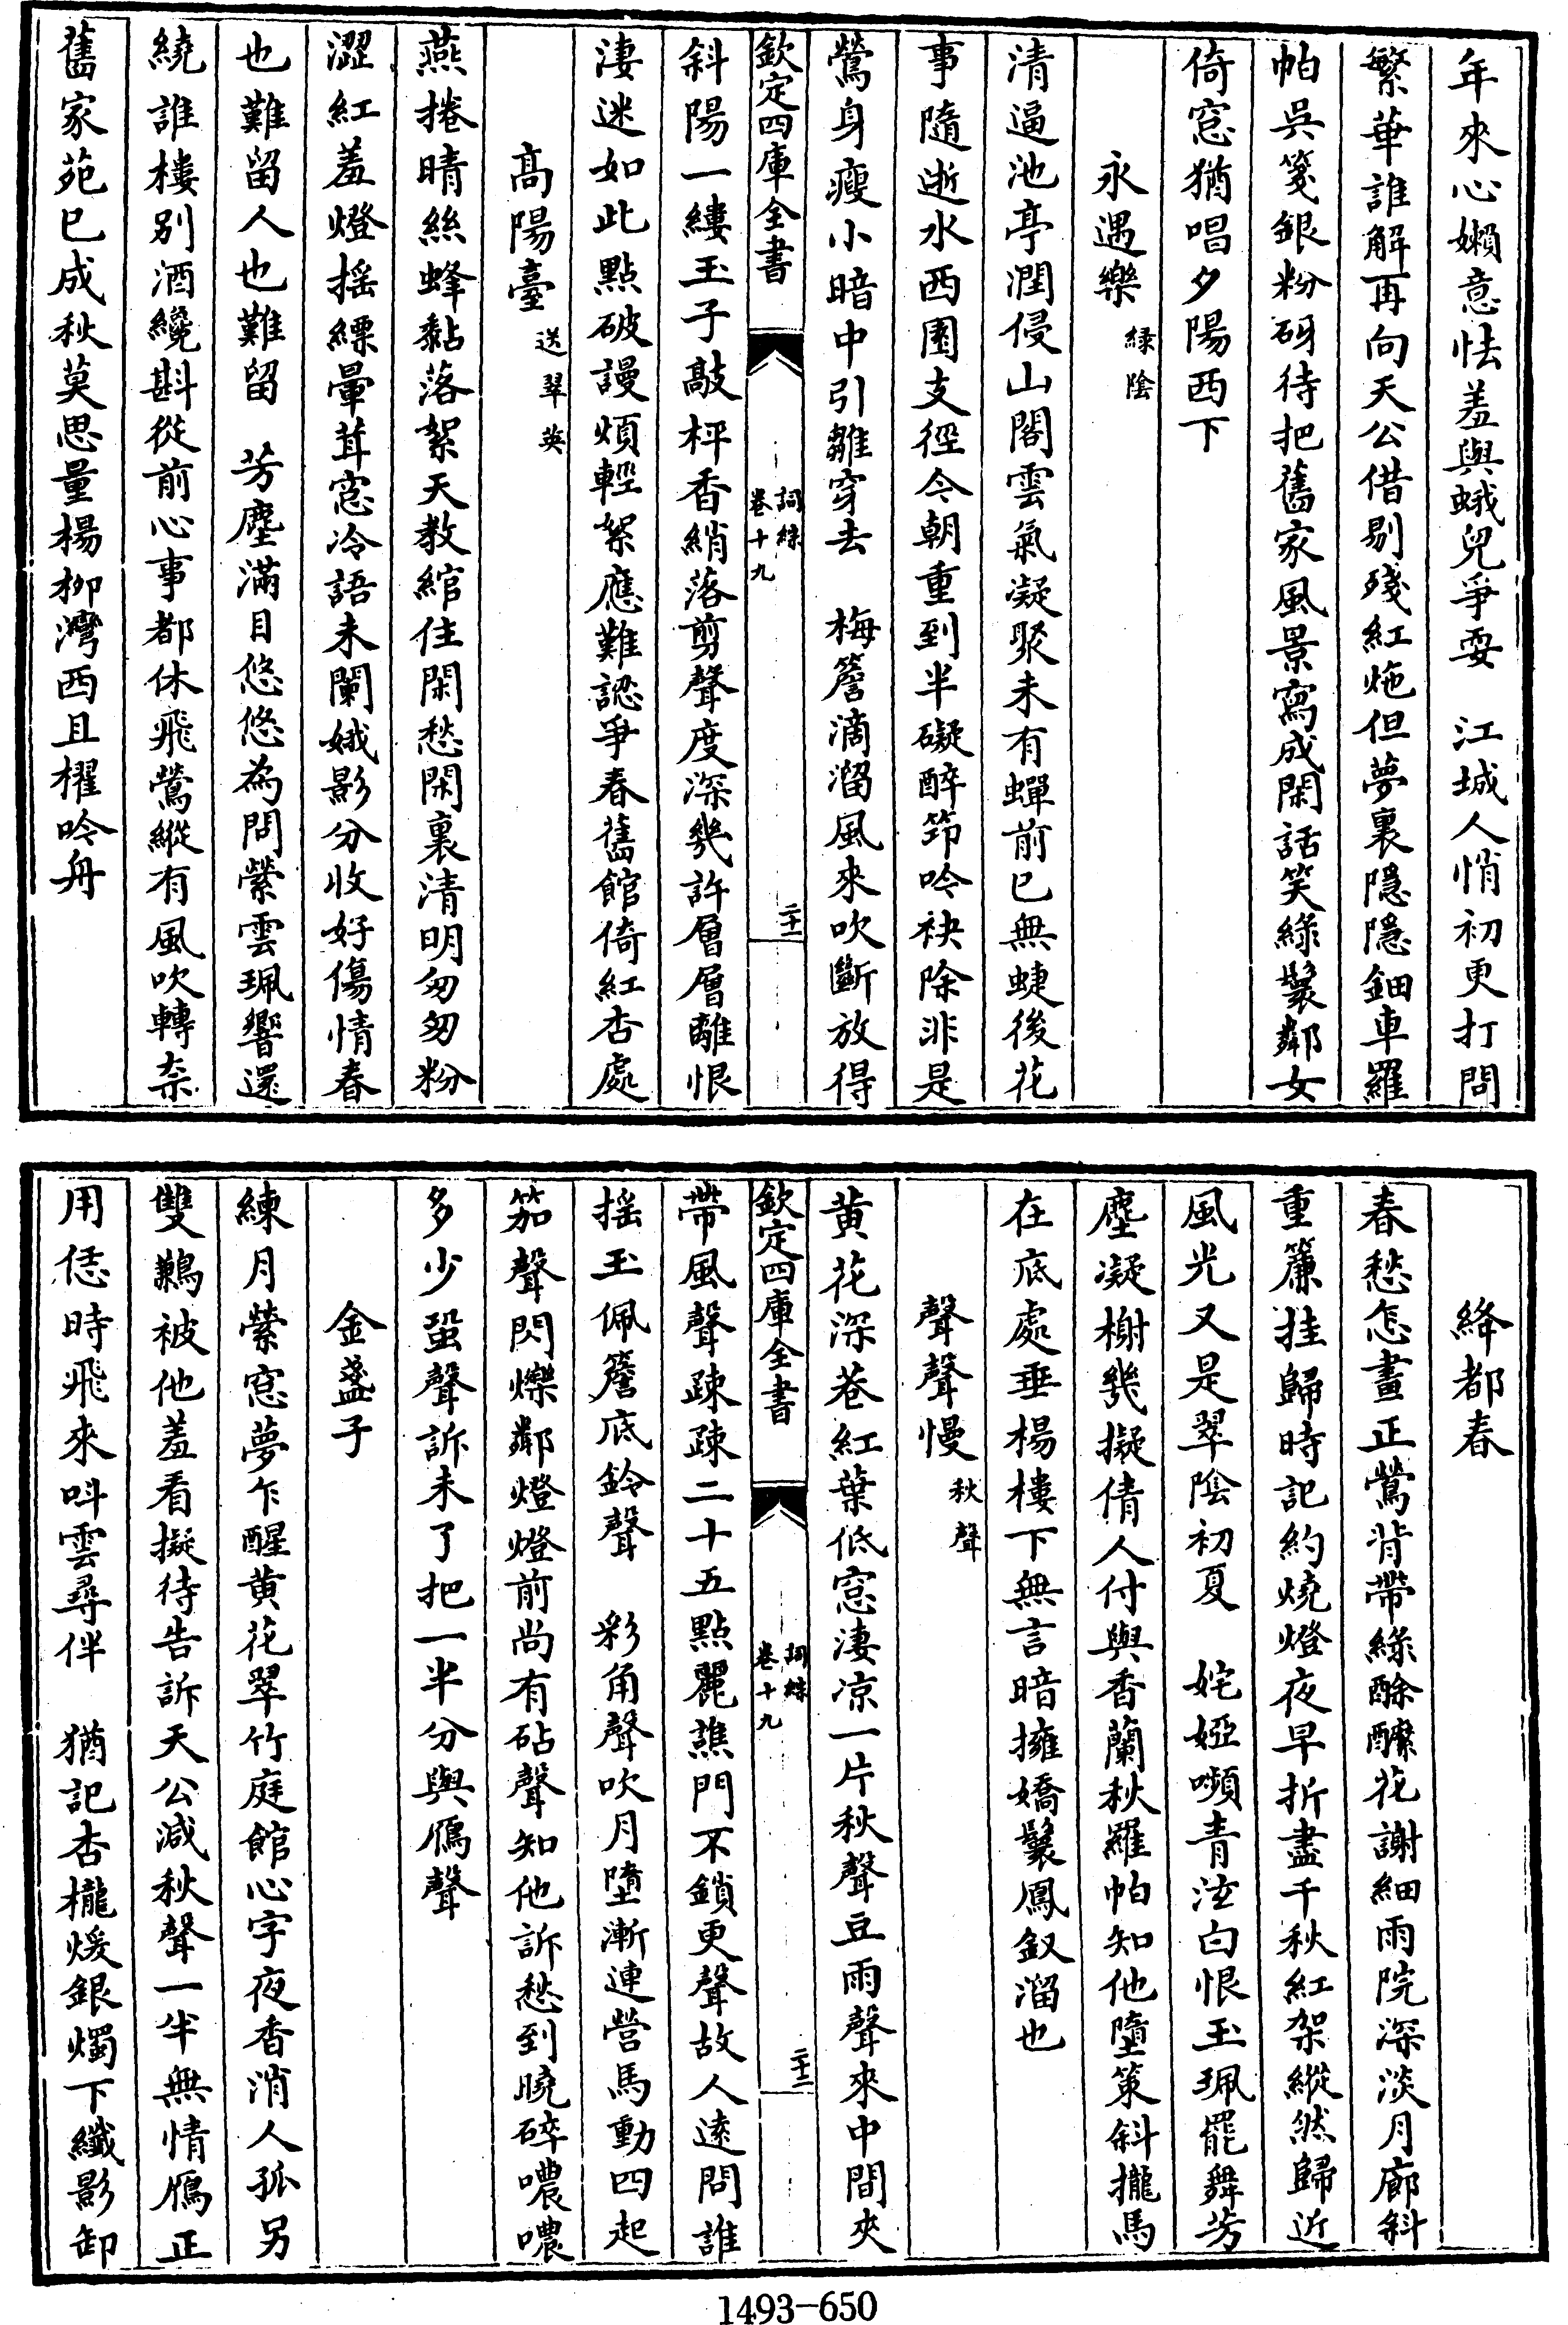 年來心嬾意怯羞與蛾兒爭耍　江城人悄初更打問
繁華誰解再向天公借剔殘紅灺但夢裏隱隱鈿車羅
帕吳箋銀粉砑待把舊家風景寫成閑話笑綠鬟鄰女
倚窓猶唱夕陽西下
永遇樂 緑陰
清逼池亭潤侵山閣雲氣凝聚未有蟬前已無蜨後花
事隨逝水西園支徑今朝重到半礙醉筇吟袂除非是
鶯身瘦小暗中引雛穿去　梅簷滴溜風來吹斷放得
欽定四庫全書
詞綜
卷十九
二十一
斜陽一縷玉子敲枰香綃落剪聲度深幾許層層離恨
淒迷如此點破謾煩輕絮應難認爭春舊館倚紅杏處
高陽臺 送翠英
燕捲晴絲蜂黏落絮天教綰住閑愁閑裏清明匆匆粉
澀紅羞燈揺縹暈茸窓冷語未闌娥影分收好傷情春
也難留人也難留　芳塵滿目悠悠為問縈雲珮響還
繞誰樓別酒纔斟從前心事都休飛鶯縱有風吹轉奈
舊家苑已成秋莫思量楊柳灣西且櫂吟舟
絳都春
春愁怎畫正鶯背帶綠酴醿花謝細雨院深淡月廊斜
重簾挂歸時記約燒燈夜早折盡千秋紅架縱然歸近
風光又是翠陰初夏　姹婭嚬青泫白恨玉珮罷舞芳
塵凝榭幾擬倩人付與香蘭秋羅帕知他墮策斜攏馬
在底處垂楊樓下無言暗擁嬌鬟鳳釵溜也
聲聲慢 秋聲
黃花深巷紅葉低窓淒凉一片秋聲豆雨聲來中間夾
欽定四庫全書
詞綜
卷十九
二十二
帶風聲疎疎二十五點麗譙門不鎖更聲故人逺問誰
揺玉佩簷底鈴聲　彩角聲吹月墮漸連營馬動四起
笳聲閃爍鄰燈燈前尚有砧聲知他訴愁到曉碎噥噥
多少蛩聲訴未了把一半分與鴈聲
金盞子
練月縈窓夢乍醒黃花翠竹庭館心字夜香消人孤另
雙鶼被他羞看擬待告訴天公減秋聲一半無情鴈正
用恁時飛來呌雲尋伴　猶記杏櫳煖銀燭下纖影卸
1493-650